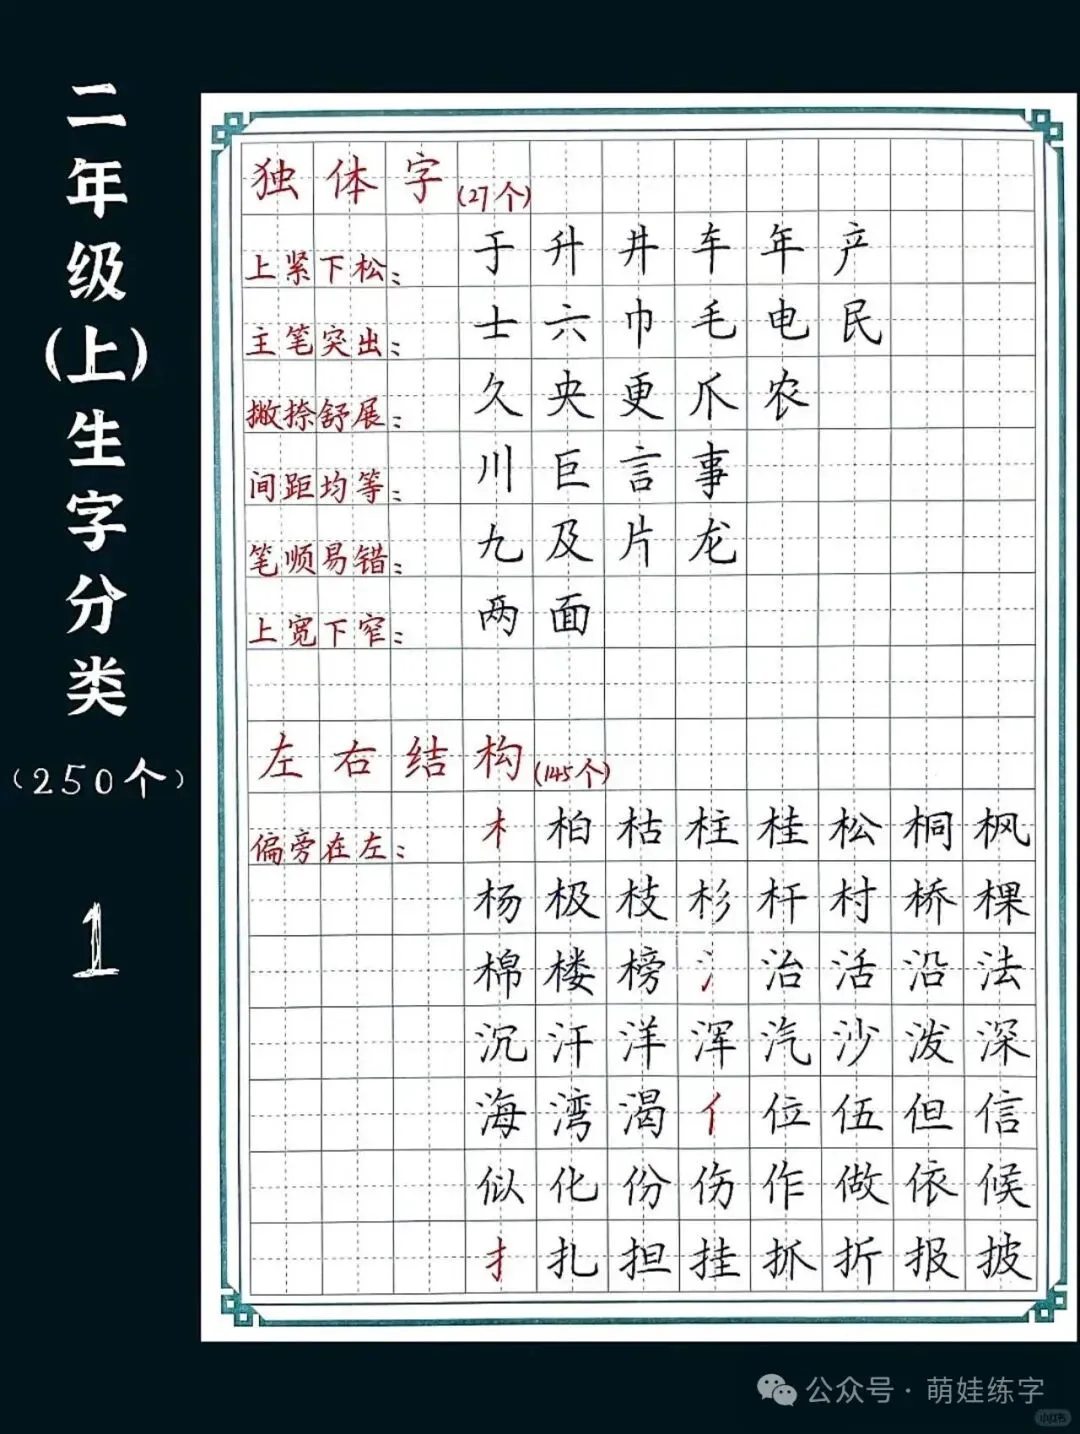 二年级(上)生字分类
(250个)
1
独体字(27个)
上紧下松：于升井车年产
主笔突出：士六巾毛电民
撇捺舒展：久央更爪农
间距均等：川巨言事
笔顺易错：九及片龙
上宽下窄：两面
左右结构(145个)
偏旁在左：木柏枯柱桂松桐枫
杨极枝杉杆村桥棵
棉楼榜氵治活沿法
沉汗洋浑汽沙泼深
海湾渴亻位伍但信
似化份伤作做依候
扌扎担挂抓折报披
公众号·萌娃练字
小红书